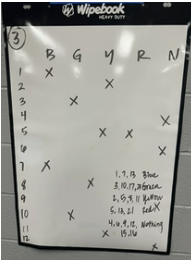 Wipebook
HEAVY DUTY
3
B G Y R N
1 X
2 X
3 X
4 X
5 X X
6 X
7 X 1, 7, 13 Blue
8 X 3, 10, 17, Green
9 2, 5, 8, 11 Yellow
10 X 5, 13, 21 Red X
11 4, 6, 9, 12, Nothing
12 X 15, 16 X